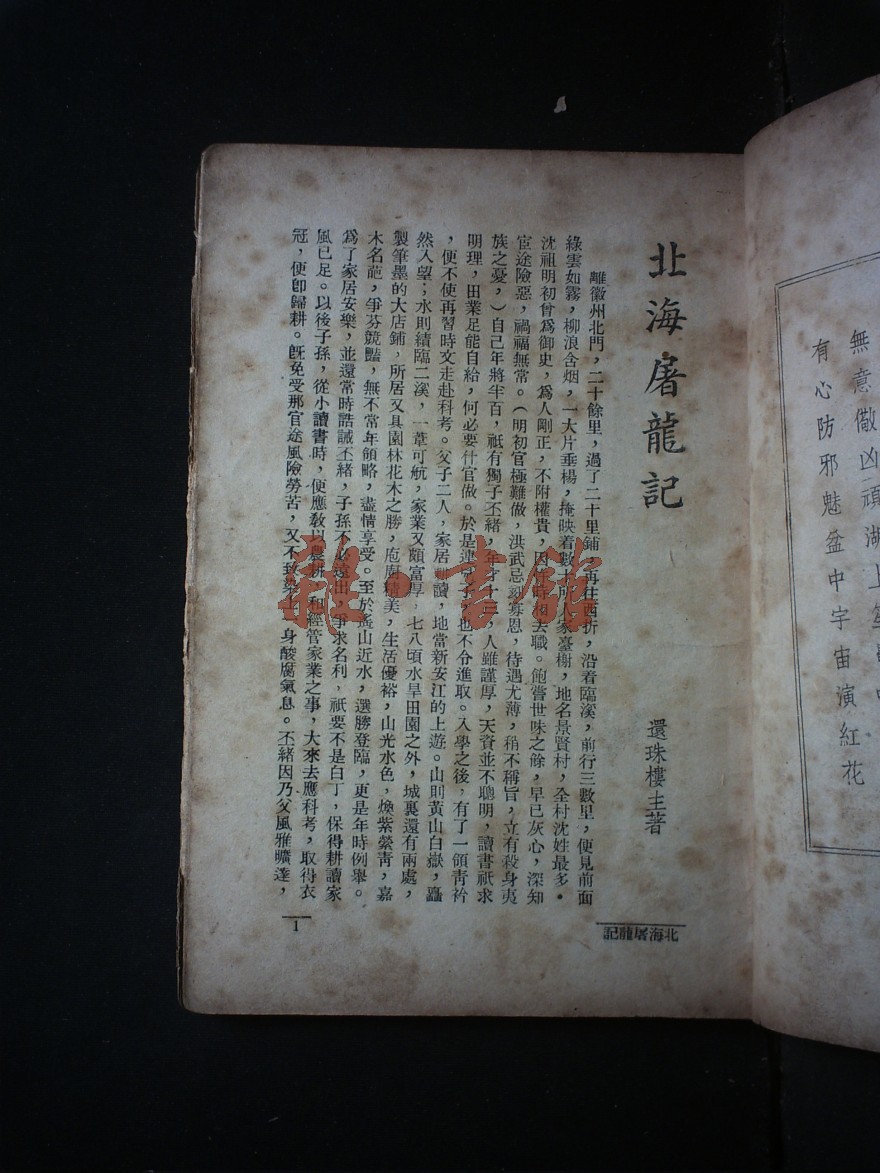 無意儆凶頑湖上笙
有心防邪魅盆中宇宙演紅花
北海屠龍記
還珠樓主著
離徽州北門，二十餘里，過了二十里鋪，再往西折，沿着臨溪，前行三數里，便見前面
綠雲如霧，柳浪含烟，一大片垂楊，掩映着數十所人家臺榭，地名景賢村，全村沈姓最多。
沈祖明初曾爲御史，爲人剛正，不附權貴，因忤時相去職。飽嘗世味之餘，早已灰心，深知
宦途險惡，禍福無常。（明初官極難做，洪武忌刻寡恩，待遇尤薄，稍不稱旨，立有殺身夷
族之憂，）自己年將半百，祇有獨子丕緒，年才十三，人雖謹厚，天資並不聰明，讀書祇求
明理，田業足能自給，何必要什官做。於是連兒子也不令進取。入學之後，有了一領青衿
，便不使再習時文走赴科考。父子二人，家居耕讀，地當新安江的上游。山則黃山白嶽，矗
然入望；水則績臨二溪，一葦可航，家業又頗富厚，七八頃水旱田園之外，城裏還有兩處，
製筆墨的大店鋪，所居又具園林花木之勝，庖廚精美，生活優裕，山光水色，煥紫縈靑，嘉
木名葩，爭芬競豔，無不常年領略，盡情享受。至於遙山近水，選勝登臨，更是年時例舉。
爲了家居安樂，並還常時誥誡丕緒，子孫不必遠出，爭求名利，祇要不是白丁，保得耕讀家
風已足。以後子孫，從小讀書時，便應敎以農耕，和經管家業之事，大來去應科考，取得衣
冠，便卽歸耕。旣免受那官途風險勞苦，又不致染上一身酸腐氣息。丕緒因乃父風雅曠達，
北海屠龍記
1
雜·書館